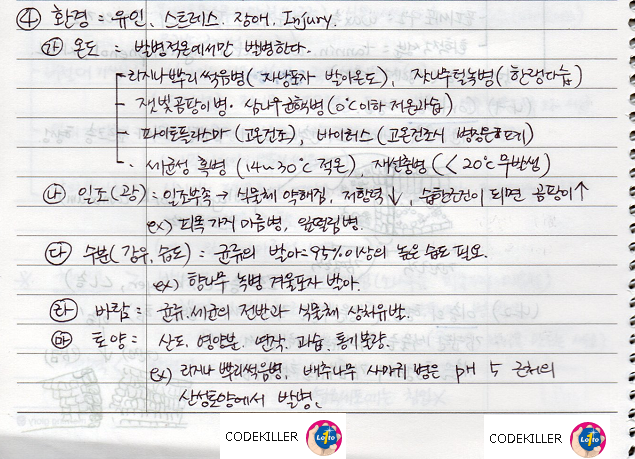 ④ 환경 : 유인, 스트레스, 장애, Injury.
㉮ 온도 : 발병적온에서만 발병한다.
- 리지나뿌리썩음병 (자낭포자 발아온도), 잣나무털녹병 (한랭다습)
- 잿빛곰팡이병· 삼나무균핵병 (0℃이하 저온과습)
- 파이토플라스마 (고온건조), 바이러스 (고온건조시 병징은폐)
- 세균성 혹병 (14~30℃ 적온), 재선충병 (<20℃ 무발생)
㉯ 일조(광) : 일조부족 → 식물체 약해짐, 저항력↓, 습한조건이 되면 곰팡이↑
ex) 피목가지마름병, 잎떨림병.
㉰ 수분(강우, 습도) : 균류의 발아=95%이상의 높은 습도 필요.
ex) 향나무 녹병 겨울포자 발아.
㉱ 바람 : 균류.세균의 전반과 식물체 상처유발.
㉲ 토양 : 산도, 영양분, 연작, 과습, 통기불량.
ex) 리지나 뿌리썩음병, 배추나무 사마귀 병은 pH 5 근처의
산성토양에서 발병.
CODEKILLER Lotto CODEKILLER Lotto